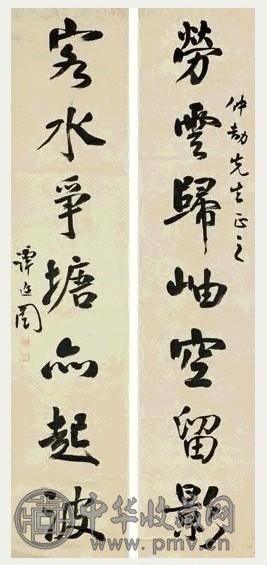 仲 先生正之
勞雲歸岫空留影
客水爭塘亦起波
譚延闓
中华收藏网
www.pmv.cn